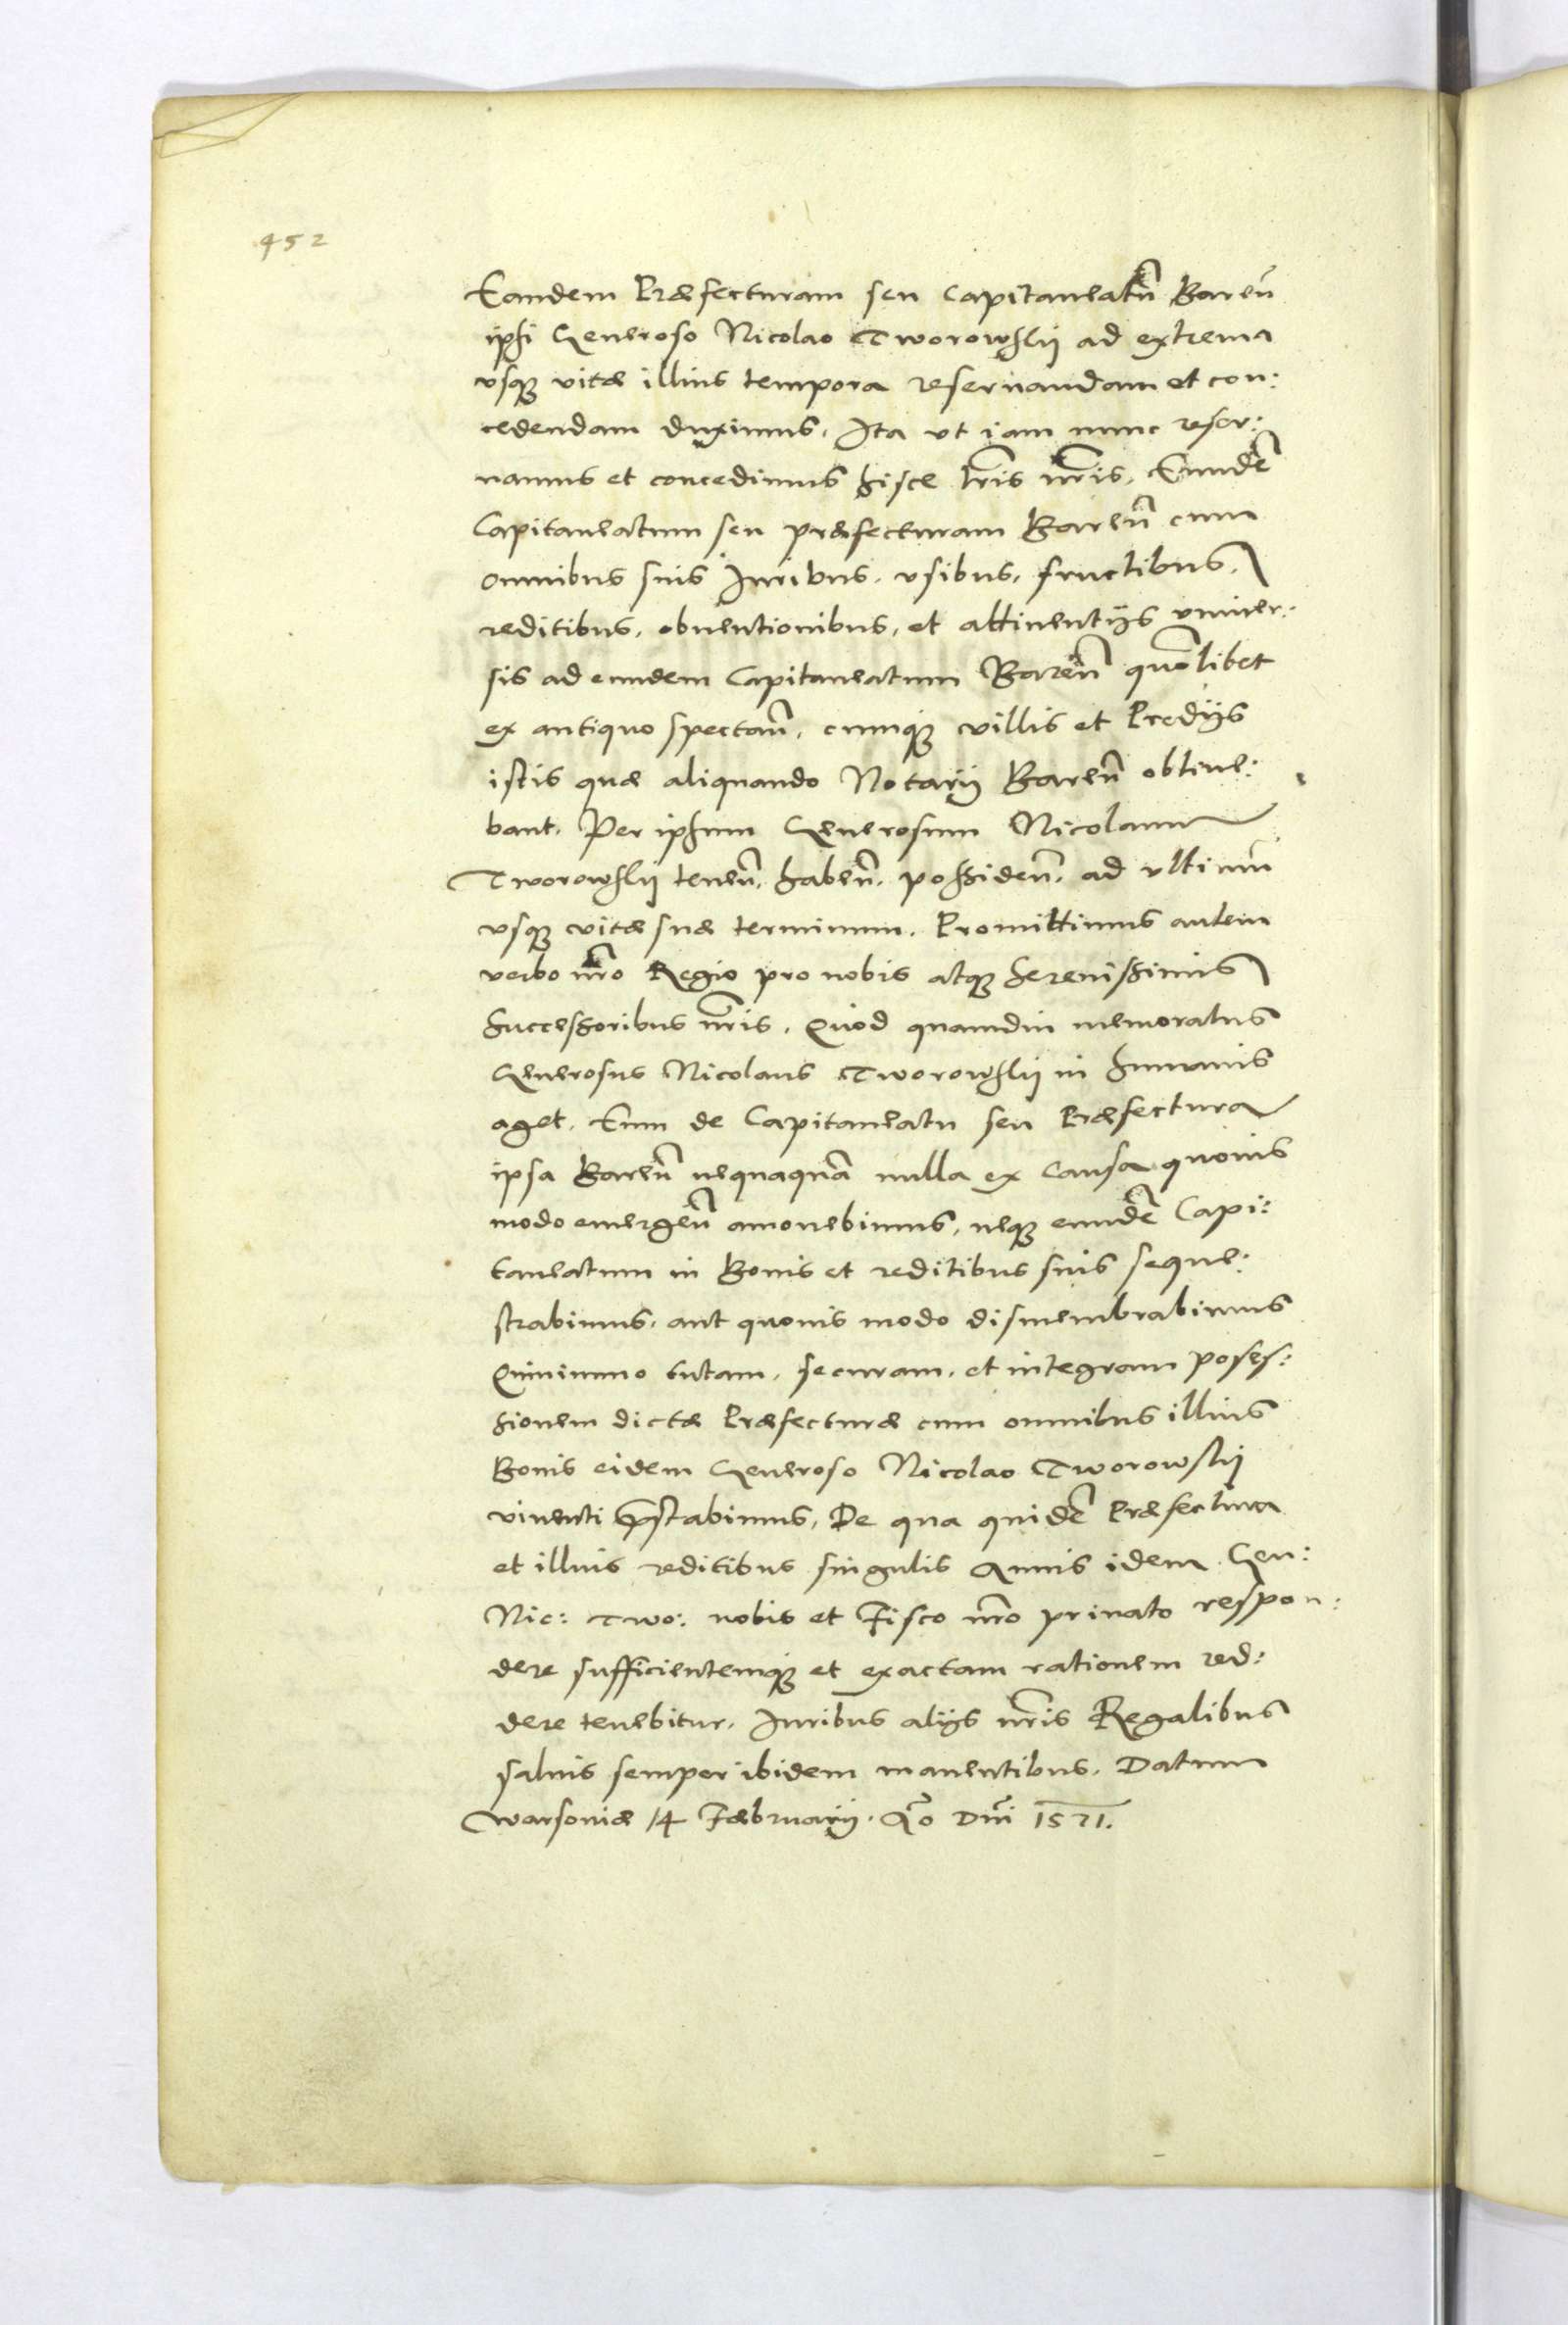 452
Eandem Præfecturam seu Capitaneatũ Bareñ
ipsi Generoso Nicolao Tworowskij ad extrema
vsq vitæ illius tempora reseruandam et con:
cedendam duximus. Ita vt iam nunc reser:
uamus et concedimus hisce lr̃is nr̃is. Eundẽ
Capitaneatum seu præfecturam Bareñ cum
omnibus suis Iuribus. vsibus, fructibus,
reditibus, obuentionibus, et attinentijs vniuer:
sis ad eundem Capitaneatum Bareñ quõlibet
ex antiquo spectañ, cumq villis et Prædijs
istis quæ aliquando Notarij Bareñ obtine:
bant. Per ipsum Generosum Nicolaum
Tworowskij teneñ, habeñ, possideñ, ad vltimũ
vsq vitæ suæ terminum. Promittimus autem
verbo nr̃o Regio pro nobis atq Serenissimis
Successoribus nr̃is. Quod quamdiu memoratus
Generosus Nicolaus Tworowskij in humanis
aget. Eum de Capitaneatu seu Præfectura
ipsa Bareñ nequaquã nulla ex causa quouis
modo emergeñ amouebimus, neq eundẽ Capi:
taneatum in Bonis et reditibus suis seque:
strabimus, aut quouis modo dismembrabimus
Quinimmo tutam, securam, et integram poses:
sionem dictæ Præfecturæ cum omnibus illius
Bonis eidem Generoso Nicolao Tworowskij
viuenti p̃stabimus. De qua quidẽ Præfectura
et illius reditibus singulis Annis idem Gen:
Nic: Two: nobis et Fisco nr̃o priuato respon:
dere sufficientemq et exactam rationem red:
dere tenebitur. Iuribus alijs nr̃is Regalibus
saluis semper ibidem manentibus. Datum
Warsouiæ 14 Februarij. Aõ Dñi 1571.